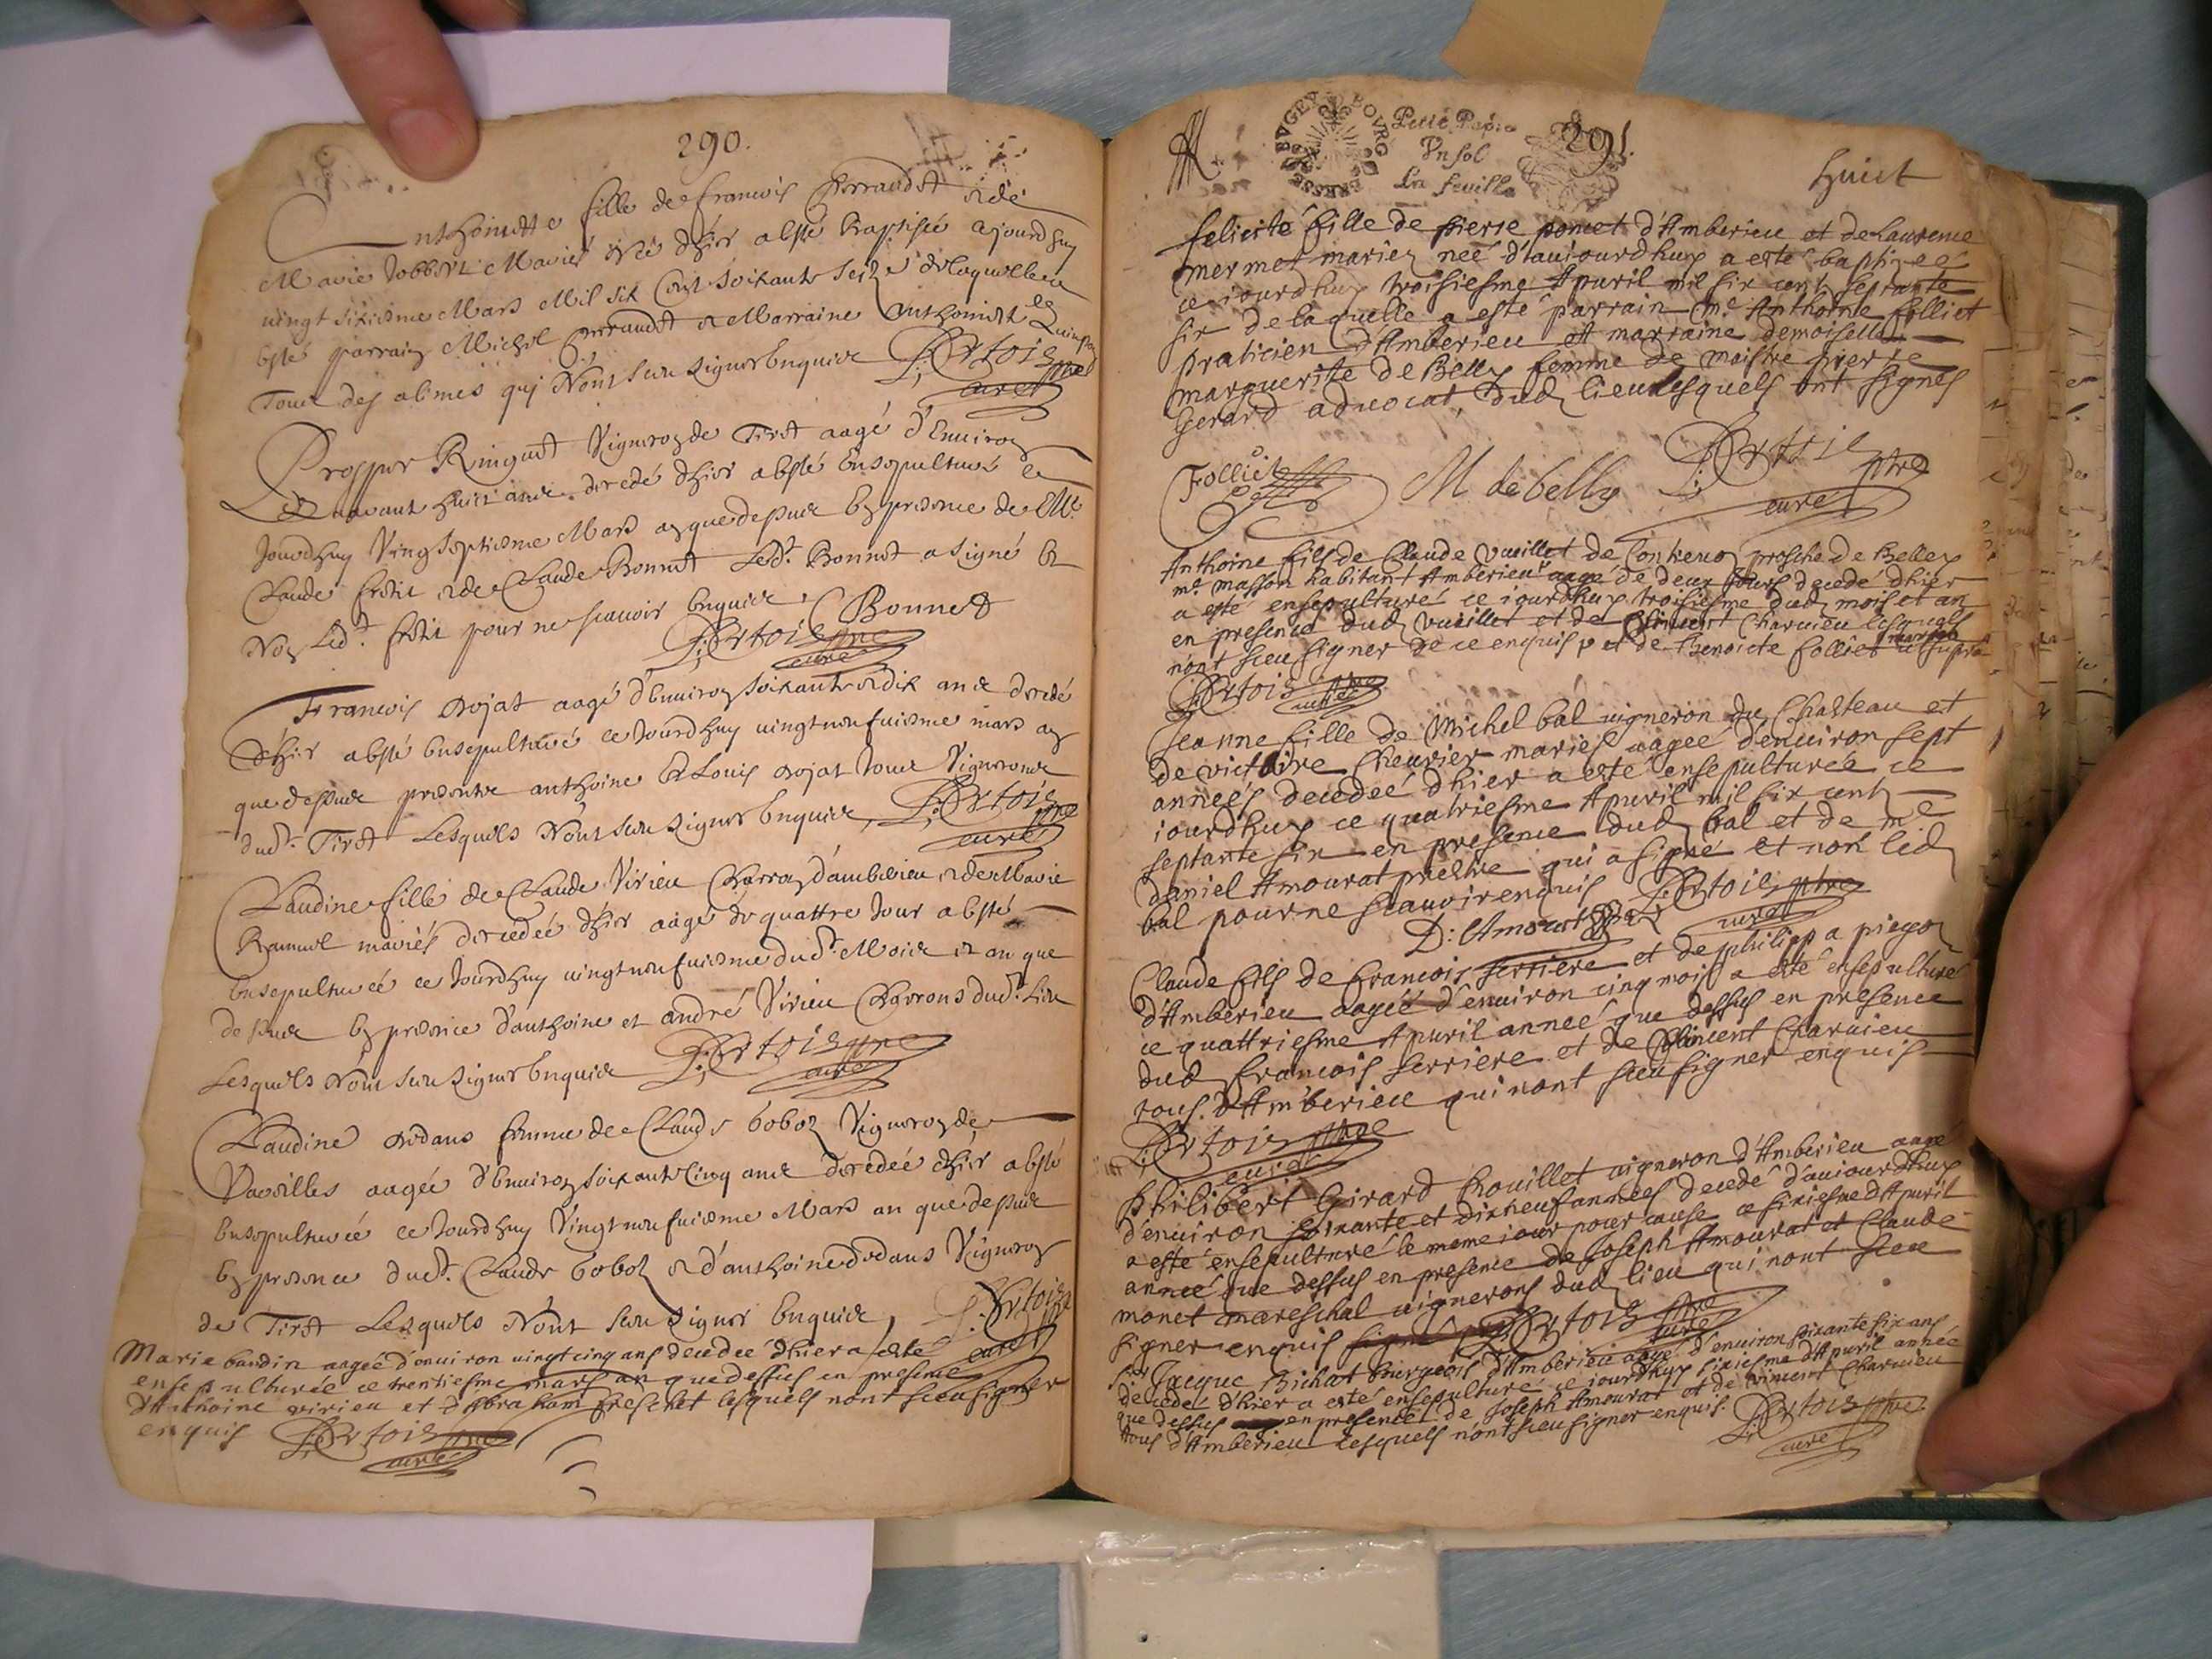 290.
Anthoinette fille de francois perraudet & de
Marie Jobbert Mariés née d'hier a esté baptisée ajourdhuy
vingt sixiesme Mars Mil six Cent soixante seize de laquelle a
esté parrain Michel perraudet & Marraine Anthoinette
Tous des abimes qui Nont sceu signer Enquis
P: Ortois pbre
curé
Prosper Vigneron de Tiret aagé d'Environ
ans decedé d'hier a esté Ensepulturé ce
Jourdhuy Vingtseptiesme Mars an que dessus En presence de Me
Claude petit & de Claude Bonnet Led.t Bonnet a signé Et
Non Led.t petit pour ne scavoir Enquis. Bonnet
P: Ortois pbre
curé
Francois Dojat aagé d'Environ soixante & dix ans decedé
d'hier a esté Ensepulturé ce Jourdhuy vingtneufuiesme mars an
que dessus presents anthoine Et Louis Dojat tous Vignerons
dud.t Tiret Lesquels Nont sceu signer Enquis, P: Ortois pbre
curé
Claudine fille de Claude Virieu Charron d'ambérieu & de Marie
mariés decedée d'hier aagé de quattre Jour a esté
Ensepulturée ce Jourdhuy vingtneufuiesme dud.t Mois et an que
dessus En presence d'anthoine et andré Virieu Charrons dud.t Lieu
Lesquels Nont sceu signer Enquis P: Ortois pbre
curé
Claudine Dodans femme de Claude bobon Vigneron de
Vareilles aagée d'Environ soixante Cinq ans decedée d'hier a esté
Ensepulturée ce Jourdhuy Vingtneufuiesme Mars an que dessus
En presence dud.t Claude bobon & d'anthoine dodans Vigneron
de Tiret Lesquels Nont sceu signer Enquis, P: Ortois pbre
Marie baudin aagée d'enuiron uingtcinq ans decedée d'hier a esté curé
ensepulturée ce trentiesme mars an que dessus en presence
d'Anthoine virieu et d'Abraham freschet lesquels nont sceu signer
enquis P: Ortois pbre
curé
BVGEY BOVRG BRESSE
Petit Papier
Vn sol
La feuille
291.
huict
felicité fille de pierre poncet d'Amberieu et de Laurence
mermet mariez neé d'aujourdhuy a esté baptizeé
ce iourdhuy troisiesme Apuril mil six cent septante
six de laquelle a esté parrain me. Anthoine folliet
praticien d'Amberieu et marraine demoiselle
marguerite de Belly femme de maistre pierre
Gerard aduocat, dud lieu lesquels ont signés
Folliet M de belly P: Ortois pbre
curé
Anthoine fils de Claude vueillet de prosche de Belley
me. masson habitant Amberieu aagé de deux jours decedé d'hier
a esté ensepulturé ce iourdhuy troisiesme dud mois et an
en presence dud vueillet et de Vincent Charuieu lesquels
nont sceu signer de ce enquis p et de benoicte folliet ut supra
P: Ortois pbre
curé
Jeanne fille de Michel bal uigneron du Chasteau et
de victoire Cheurier mariés aageé d'enuiron sept
anneés decedeé d'hier a esté ensepulturée ce
iourdhuy ce quatriesme Apuril mil six cent
septante six en presence dud bal et de me
Daniel Amourat prestre qui a signé et non led
bal pour ne scauoir enquis P: Ortois pbre
D: Amourat pbre curé
Claude fils de francois ferriere et de philippa piegon
d'Amberieu aageé d'enuiron cinq mois a esté ensepulturé
ce quattriesme Apuril anneé que dessus en presence
dud francois ferriere et de Vincent Charuieu
tous d'Amberieu qui nont sceu signer enquis
P: Ortois pbre
curé
Philibert Girard Chouillet uigneron d'Amberieu aagé
d'enuiron soixante et dixneuf anneés decedé d'auiourdhuy
a esté ensepulturé le meme iour pour cause ce sixiesme d'Apuril
anneé que dessus en presence de Joseph Amourat et Claude
monet mareschal uignerons dud lieu qui nont sceu
signer enquis P: Ortois pbre
curé
sieur Jacque Bichat bourgeois d'Amberieu aagé d'enuiron soixante six ans
decedé d'hier a esté ensepulturé ce iourdhuy sixiesme d'Apuril anneé
que dessus en presence de Joseph Amourat et de vincent Charuieu
tous d'Amberieu lesquels nont sceu signer enquis. P: Ortois pbre
curé